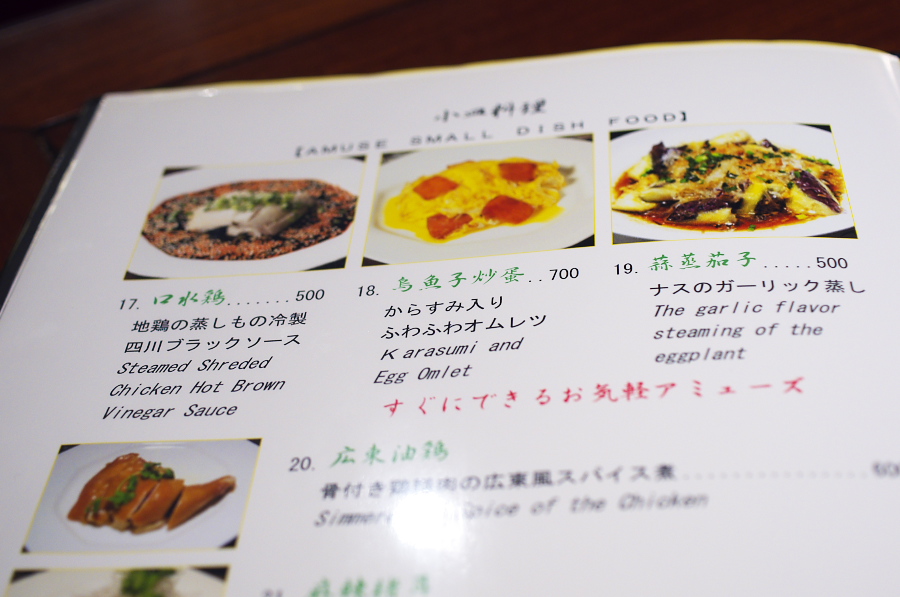 小皿料理
【AMUSE SMALL DISH FOOD】
17. 口水鶏.......500
地鶏の蒸しもの冷製
四川ブラックソース
Steamed Shreded
Chicken Hot Brown
Vinegar Sauce
18. 烏魚子炒蛋..700
からすみ入り
ふわふわオムレツ
Karasumi and
Egg Omlet
19. 蒜蒸茄子.....500
ナスのガーリック蒸し
The garlic flavor
steaming of the
eggplant
すぐにできるお気軽アミューズ
20. 広東油鶏
骨付き鶏腿肉の広東風スパイス煮
Spice of the Chicken